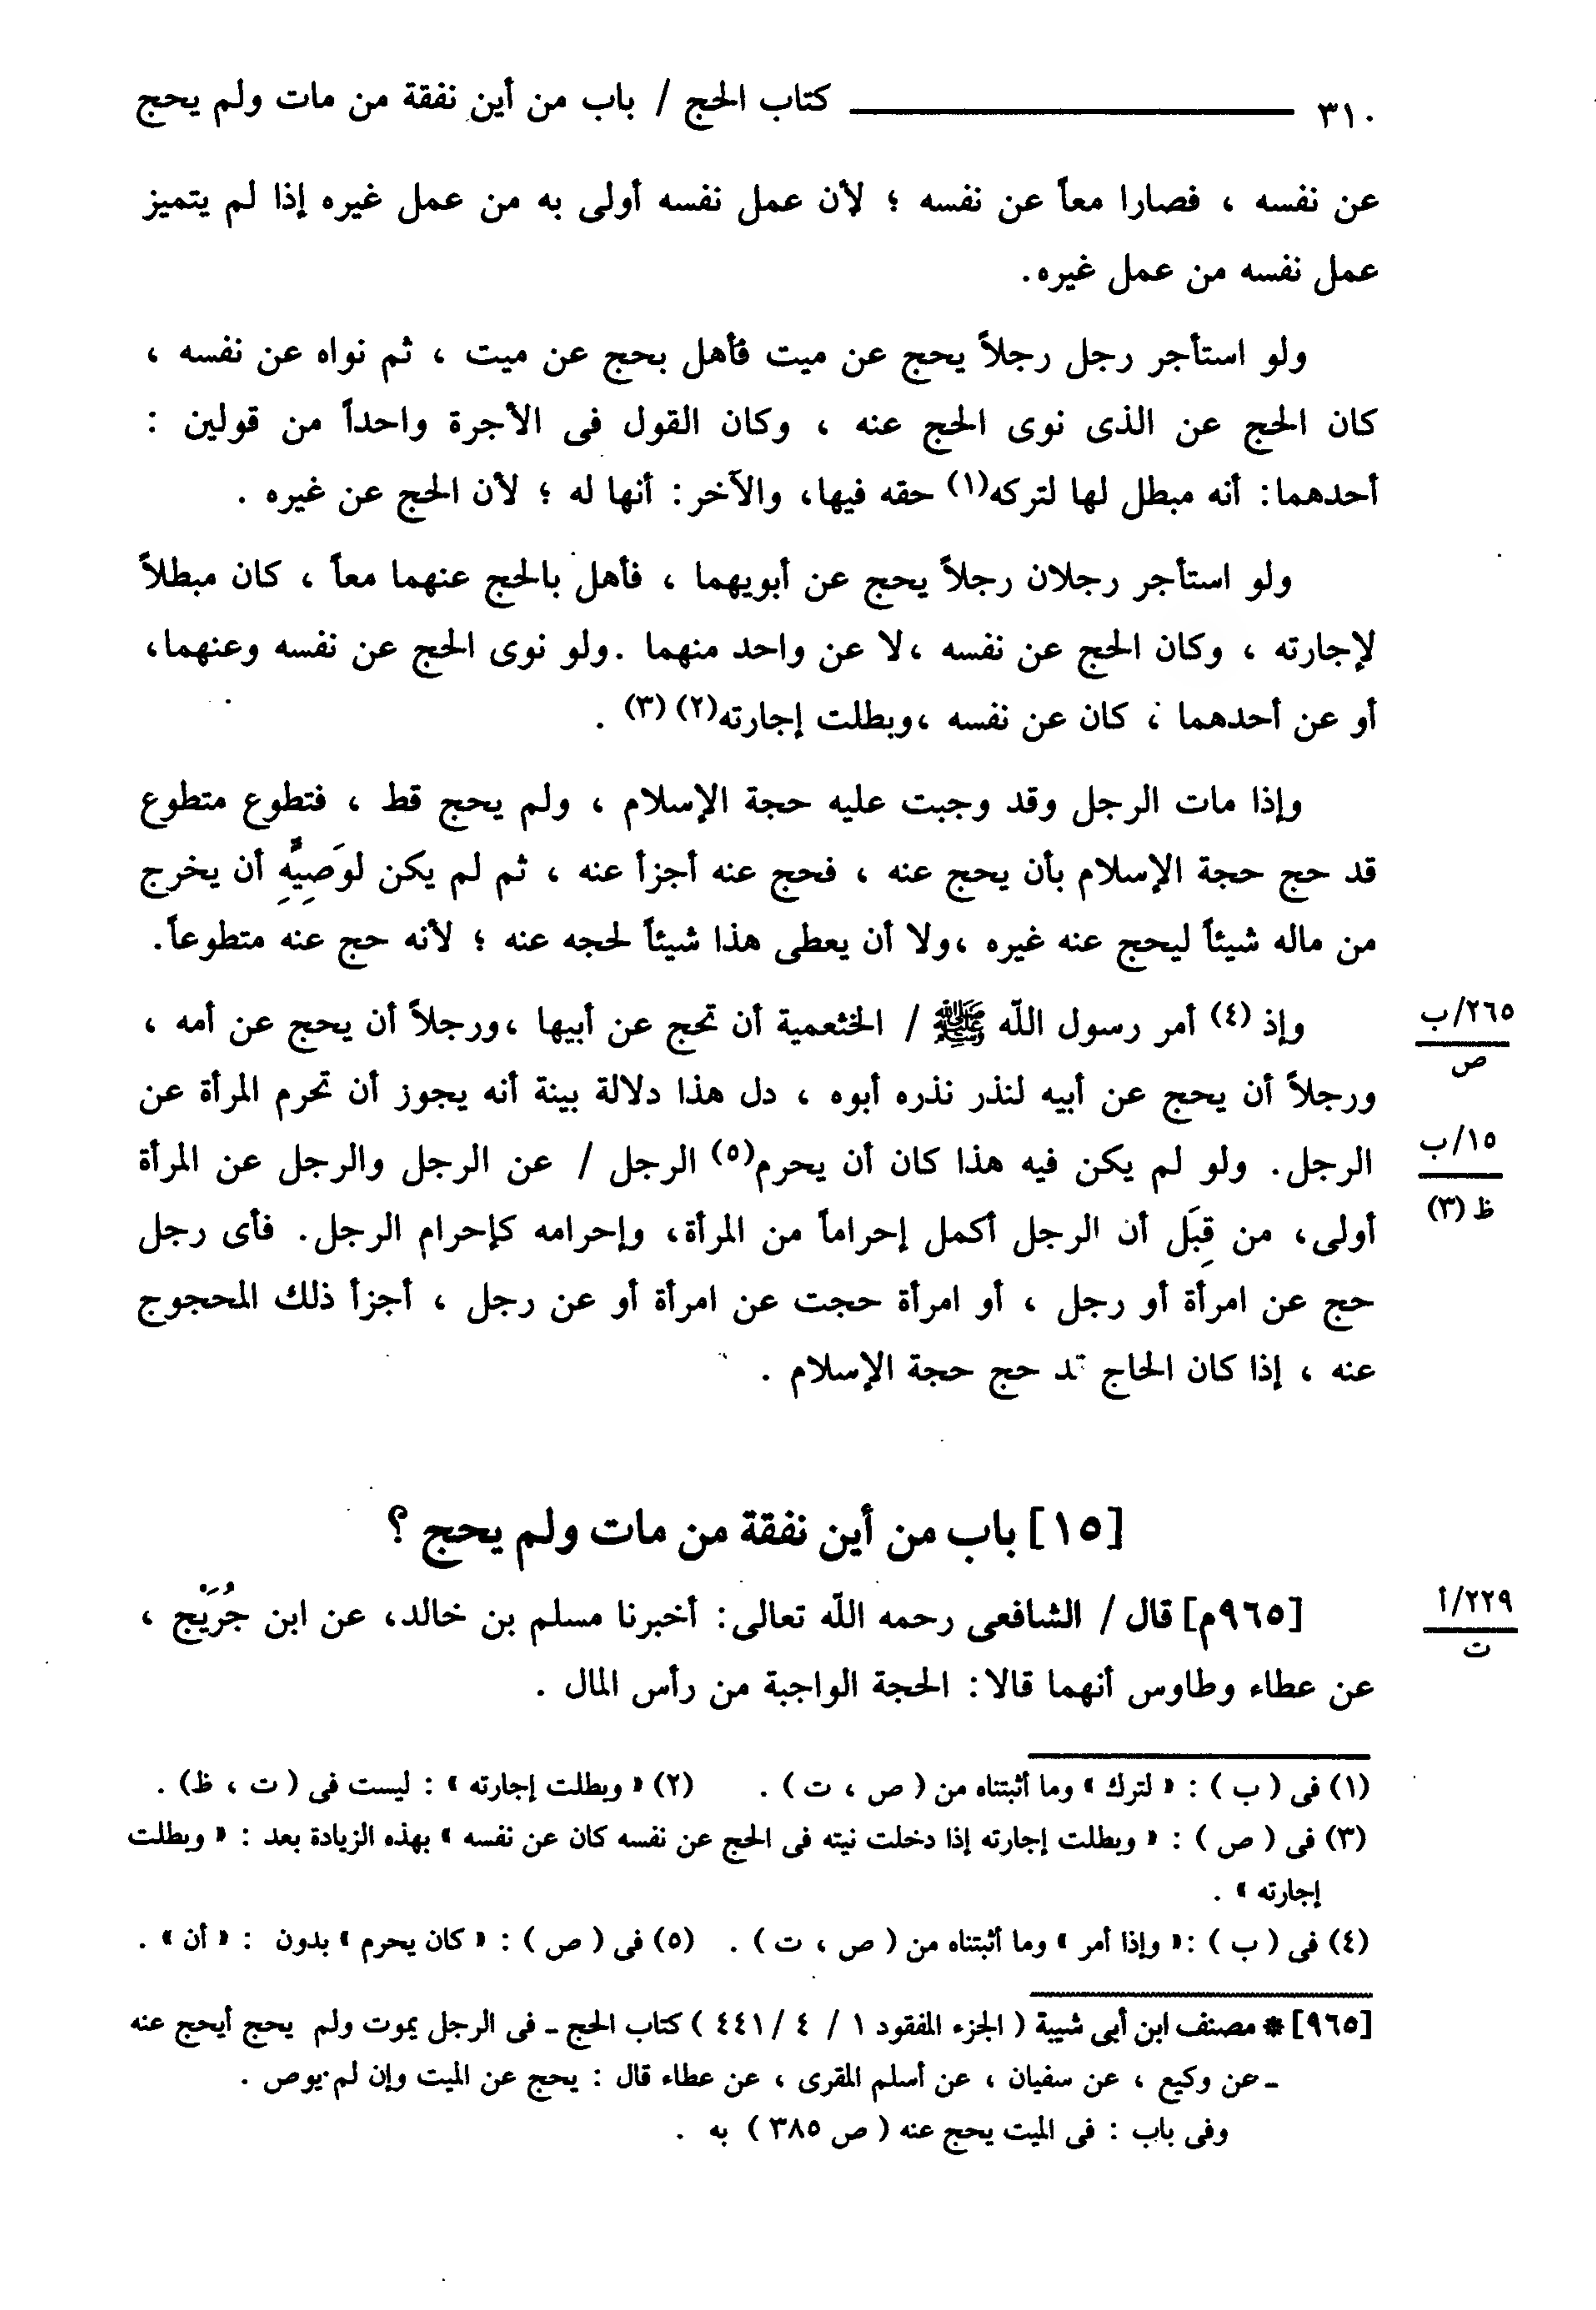 ٣١٠ ــــــــــ كتاب الحج / باب من أين نفقة من مات ولم يحج
عن نفسه ، فصارا معاً عن نفسه ؛ لأن عمل نفسه أولى به من عمل غيره إذا لم يتميز
عمل نفسه من عمل غيره.
ولو استأجر رجل رجلاً يحج عن ميت فأهل بحج عن ميت ، ثم نواه عن نفسه ،
كان الحج عن الذى نوى الحج عنه ، وكان القول فى الأجرة واحداً من قولين :
أحدهما: أنه مبطل لها لتركه(١) حقه فيها، والآخر: أنها له ؛ لأن الحج عن غيره .
ولو استأجر رجلان رجلاً يحج عن أبويهما ، فأهل بالحج عنهما معاً ، كان مبطلاً
لإجارته ، وكان الحج عن نفسه ،لا عن واحد منهما .ولو نوى الحج عن نفسه وعنهما،
أو عن أحدهما ، كان عن نفسه ،وبطلت إجارته(٢) (٣) .
وإذا مات الرجل وقد وجبت عليه حجة الإسلام ، ولم يحج قط ، فتطوع متطوع
قد حج حجة الإسلام بأن يحج عنه ، فحج عنه أجزأ عنه ، ثم لم يكن لوَصِيِّهِ أن يخرج
من ماله شيئاً ليحج عنه غيره ،ولا أن يعطى هذا شيئاً لحجه عنه ؛ لأنه حج عنه متطوعاً.
وإذ (٤) أمر رسول الله ﷺ / الخثعمية أن تحج عن أبيها ،ورجلاً أن يحج عن أمه ،
٢٦٥/ب
ص
ورجلاً أن يحج عن أبيه لنذر نذره أبوه ، دل هذا دلالة بينة أنه يجوز أن تحرم المرأة عن
الرجل. ولو لم يكن فيه هذا كان أن يحرم(٥) الرجل / عن الرجل والرجل عن المرأة
١٥/ب
ظ (٣)
أولى، من قِبَل أن الرجل أكمل إحراماً من المرأة، وإحرامه كإحرام الرجل. فأى رجل
حج عن امرأة أو رجل ، أو امرأة حجت عن امرأة أو عن رجل ، أجزأ ذلك المحجوج
عنه ، إذا كان الحاج قد حج حجة الإسلام .
[١٥] باب من أين نفقة من مات ولم يحج ؟
[٩٦٥م] قال / الشافعى رحمه الله تعالى: أخبرنا مسلم بن خالد، عن ابن جُرَيْج ،
٢٢٩/أ
ت
عن عطاء وطاوس أنهما قالا: الحجة الواجبة من رأس المال .
(١) فى ( ب ) : « لترك » وما أثبتناه من ( ص ، ت ) . (٢) « وبطلت إجارته » : ليست فى ( ت ، ظ) .
(٣) فى ( ص ) : « وبطلت إجارته إذا دخلت نيته فى الحج عن نفسه كان عن نفسه » بهذه الزيادة بعد : « وبطلت
إجارته » .
(٤) فى ( ب ) :« وإذا أمر » وما أثبتناه من ( ص ، ت ) . (٥) فى ( ص ) : « كان يحرم » بدون : « أن » .
[٩٦٥] * مصنف ابن أبى شيبة ( الجزء المفقود ١ / ٤ /٤٤١ ) كتاب الحج ـ فى الرجل يموت ولم يحج أيحج عنه
ـ عن وكيع ، عن سفيان ، عن أسلم المقرى ، عن عطاء قال : يحج عن الميت وإن لم يوص .
وفى باب : فى الميت يحج عنه ( ص ٣٨٥ ) به .